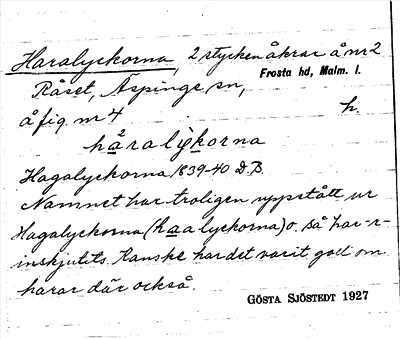 Haralyckorna, 2 stycken åkrar å nr 2
Frosta hd, Malm. l.
Råset, Äspinge sn,
å fig. nr 4 h.
håralỳkorna
Hagalyckorna 1839-40 D.B.
Namnet har troligen uppstått ur
Hagalyckorna (haalyckorna) o. så har -r-
inskjutits. Kanske har det varit gott om
harar där också.
GÖSTA SJÖSTEDT 1927